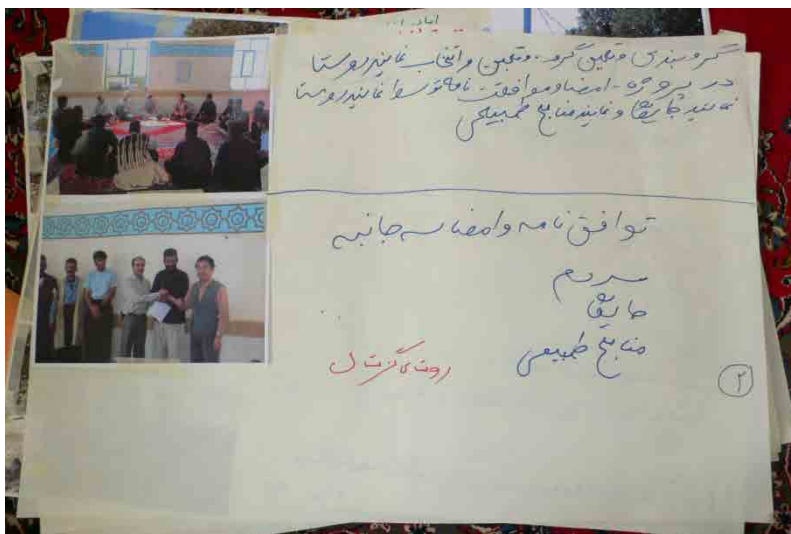 گروبندی و تعیین گروه - و تعیین و انتخاب نماینده روستا
در پروژه - امضا و موافقت نامه توسط نماینده روستا
نماینده جایقا و نماینده منابع طبیعی
توافق نامه و امضا سه جانبه
مردم
جایقا
منابع طبیعی
روستای گزستان
۲